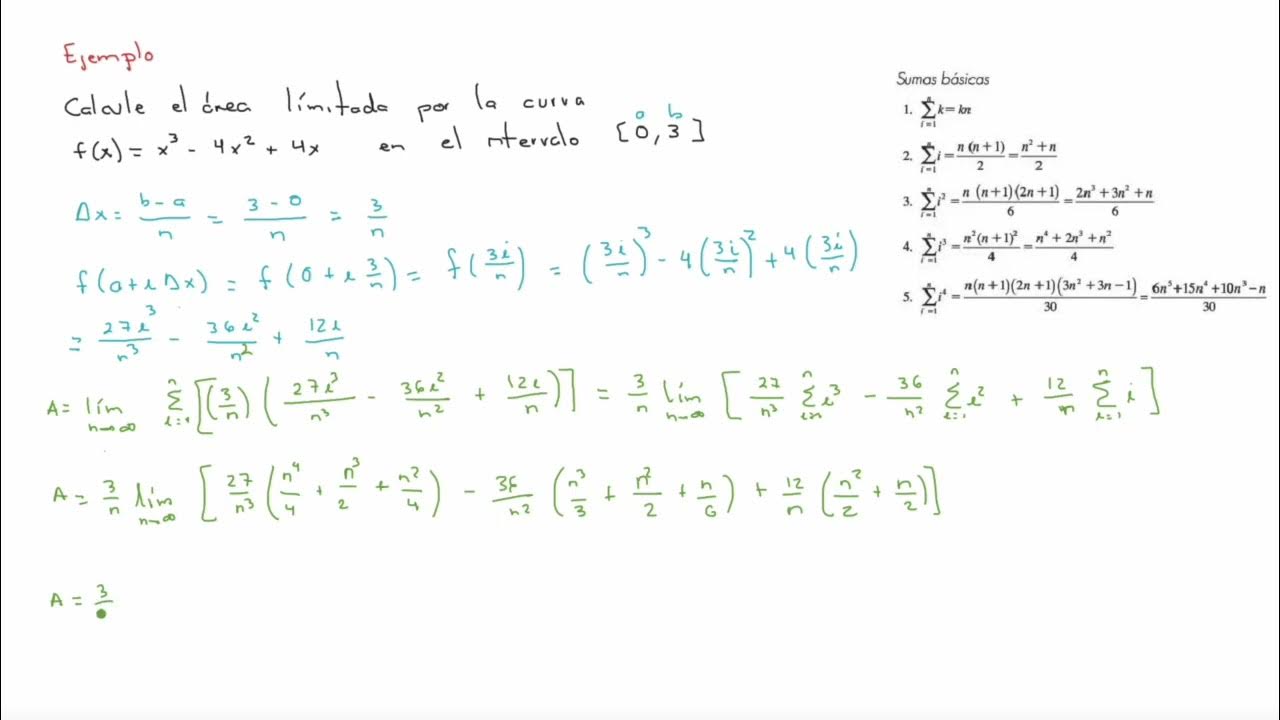 Ejemplo
Calcule el área limitada por la curva
f(x) = x³ - 4x² + 4x en el intervalo [0, 3]
a b
Δx = (b-a)/n = (3-0)/n = 3/n
f(a+iΔx) = f(0 + i 3/n) = f(3i/n) = (3i/n)³ - 4(3i/n)² + 4(3i/n)
= 27i³/n³ - 36i²/n² + 12i/n
A = lím n→∞ Σ i=1 n [(3/n)(27i³/n³ - 36i²/n² + 12i/n)] = 3/n lím n→∞ [27/n³ Σ i=1 n i³ - 36/n² Σ i=1 n i² + 12/n Σ i=1 n i]
A = 3/n lím n→∞ [27/n³ (n⁴/4 + n³/2 + n²/4) - 36/n² (n³/3 + n²/2 + n/6) + 12/n (n²/2 + n/2)]
A = 3/
Sumas básicas
1. Σ i=1 n k = kn
2. Σ i=1 n i = n(n+1)/2 = (n²+n)/2
3. Σ i=1 n i² = n(n+1)(2n+1)/6 = (2n³+3n²+n)/6
4. Σ i=1 n i³ = n²(n+1)²/4 = (n⁴+2n³+n²)/4
5. Σ i=1 n i⁴ = n(n+1)(2n+1)(3n²+3n-1)/30 = (6n⁵+15n⁴+10n³-n)/30